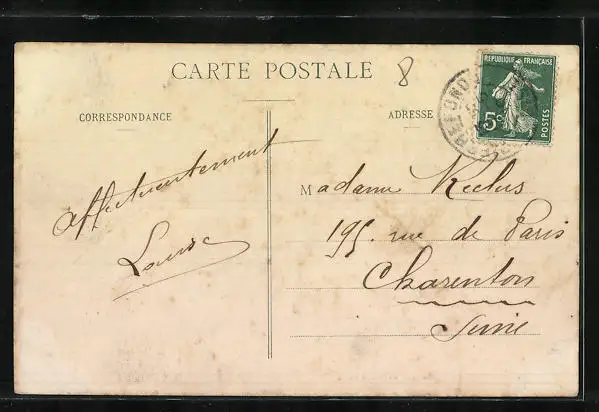 CARTE POSTALE
8
CORRESPONDANCE
ADRESSE
RÉPUBLIQUE FRANÇAISE
5c
POSTES
affectueusement
Louise
Madame Reclus
195. rue de Paris
Charenton
Seine